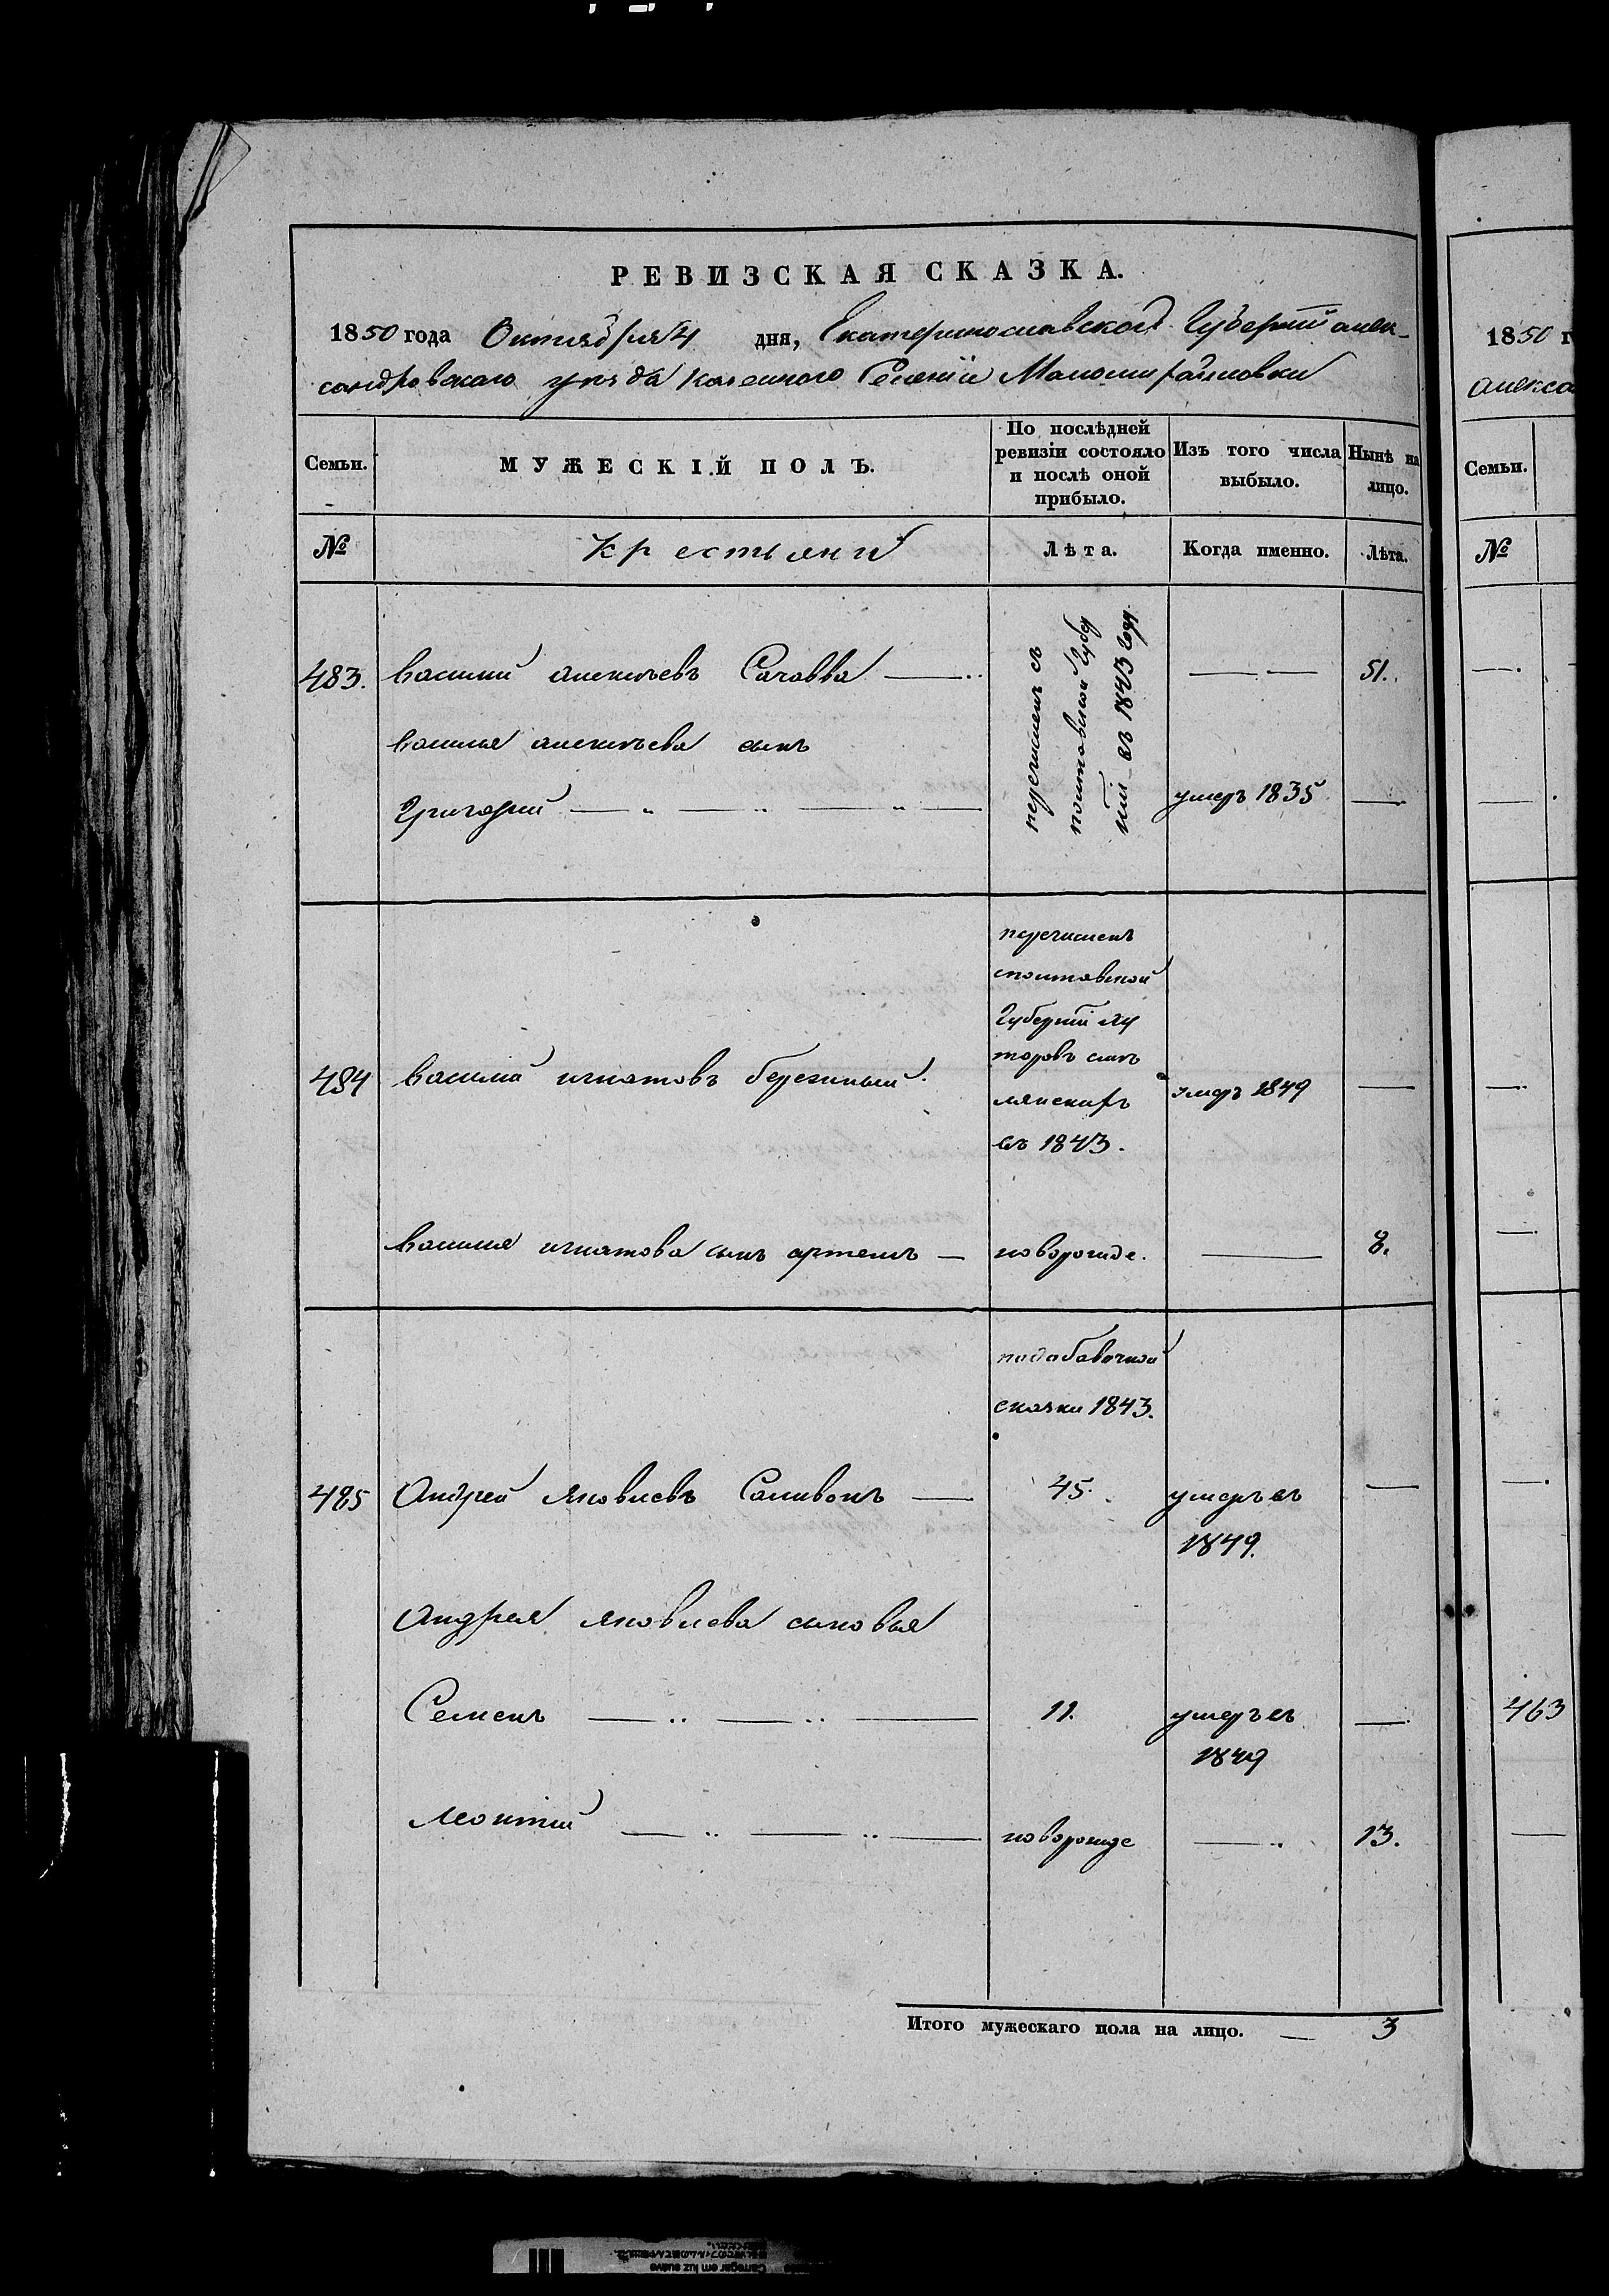 РЕВИЗСКАЯ СКАЗКА.
1850 года Октября 4 дня, Екатеринославской Губернии алек-
сандровского уезда казенного Селения Маломихайловки
Семьи.
МУЖЕСКІЙ ПОЛЪ.
По послѣдней ревизіи состояло и послѣ оной прибыло.
Изъ того числа выбыло.
Нынѣ на лицо.
№
Крестьяни
Лѣта.
Когда именно.
Лѣта.
483. василий алексѣевъ Саловва 51.
перечислен съ
полтавской Губер
ніи въ 1843 Году.
василия алексѣева сынъ
Григорий умеръ 1835
перечисленъ
сполтавской
Губерніи
въ 1843.
484 василий игнатовъ бережный. умеръ 1849
василия игнатова сынъ артемъ новорожде. 8.
подобавочной
сказки 1843.
485 Андрей яковлевъ Саливонъ 45. умеръ въ
1849.
Андрея яковлева сыновья
Семенъ 11. умеръ въ
1849
Леонтий новорожде 13.
Итого мужескаго пола на лицо. 3
1850 г
алекса
Семьи.
№
463